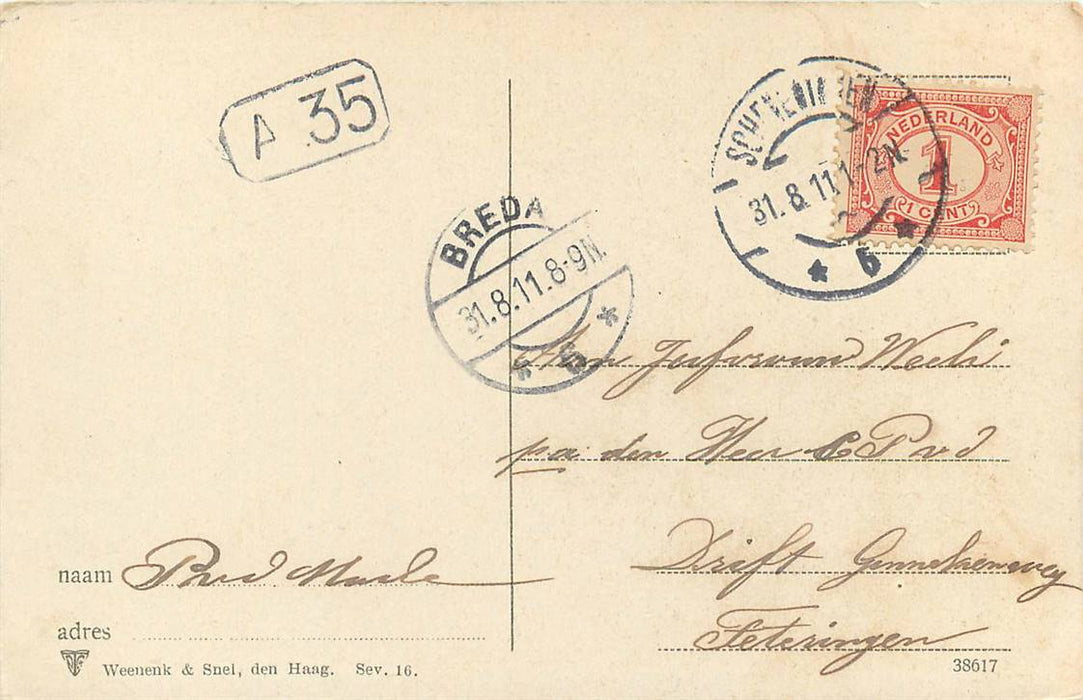 A 35
SCHEVENINGEN
31.8.11 1-2N
* 5 *
NEDERLAND
1
1 CENT
BREDA
31.8.11.8-9N.
* 5 *
Aan Jufvrouw
p.a. den Heer P v d
Drift Ginnekenweg
Teteringen
naam P v d
adres
Weenenk & Snel, den Haag. Sev. 16.
38617